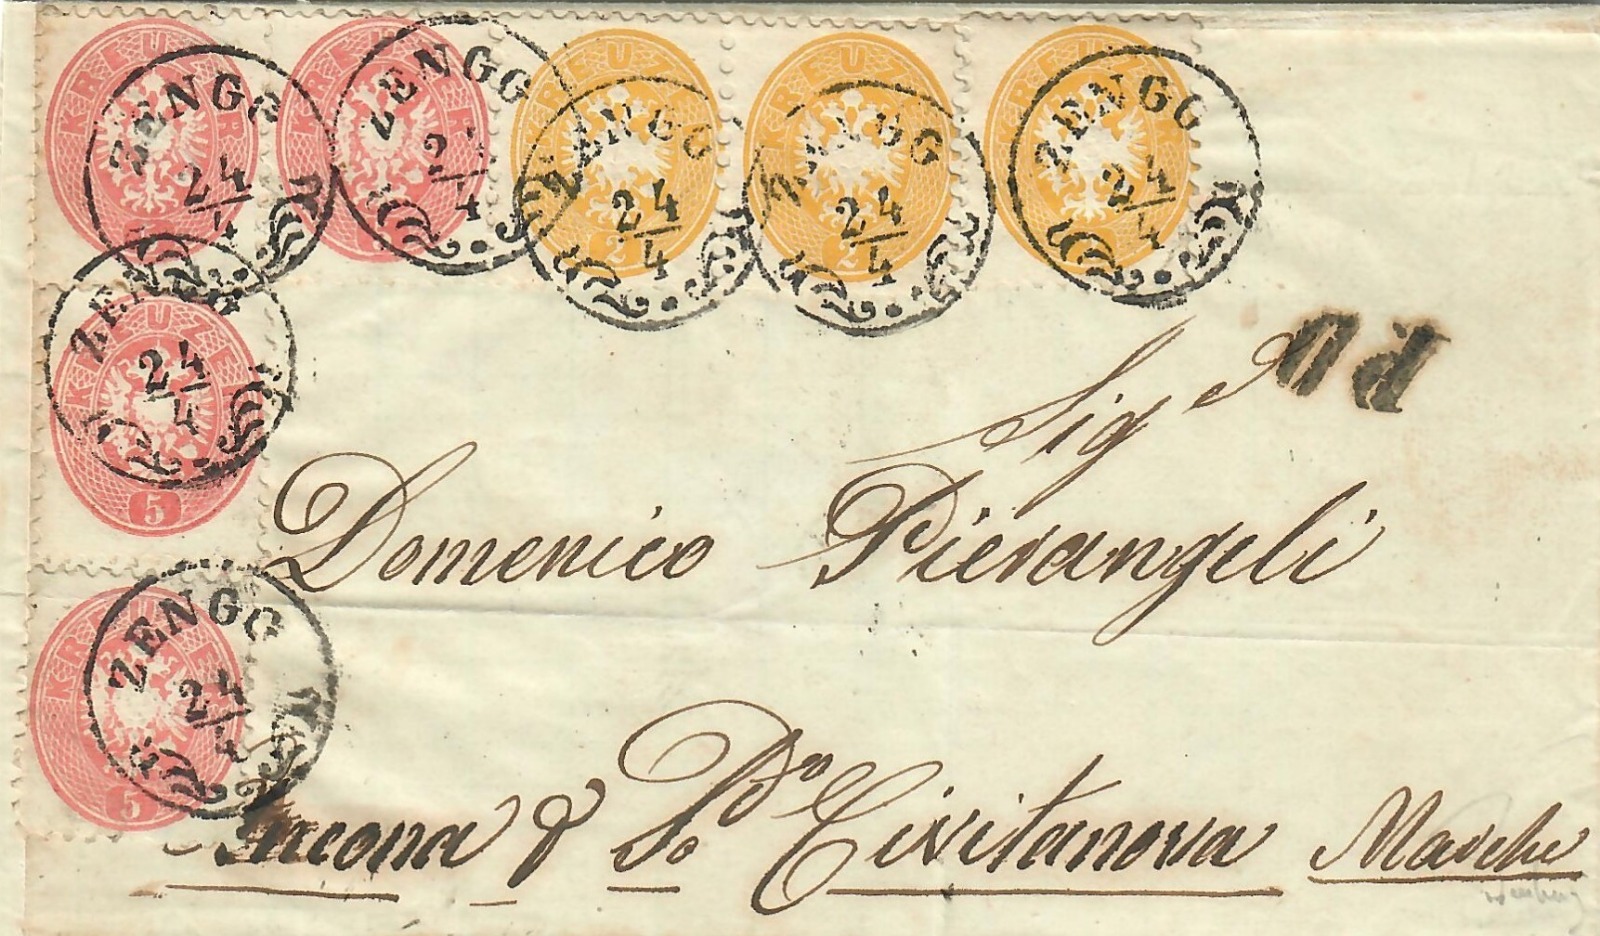 KREUZER KREUZER KREUZER KREUZER KREUZER
ZENGG ZENGG ZENGG ZENGG ZENGG
24/4 24/4 24/4 24/4 24/4
2 2
KREUZER
ZENGG
24/4
5
Sig.r
Domenico Pierangeli
KREUZER
ZENGG
24/4
5
Ancona & Po Civitanova Marche